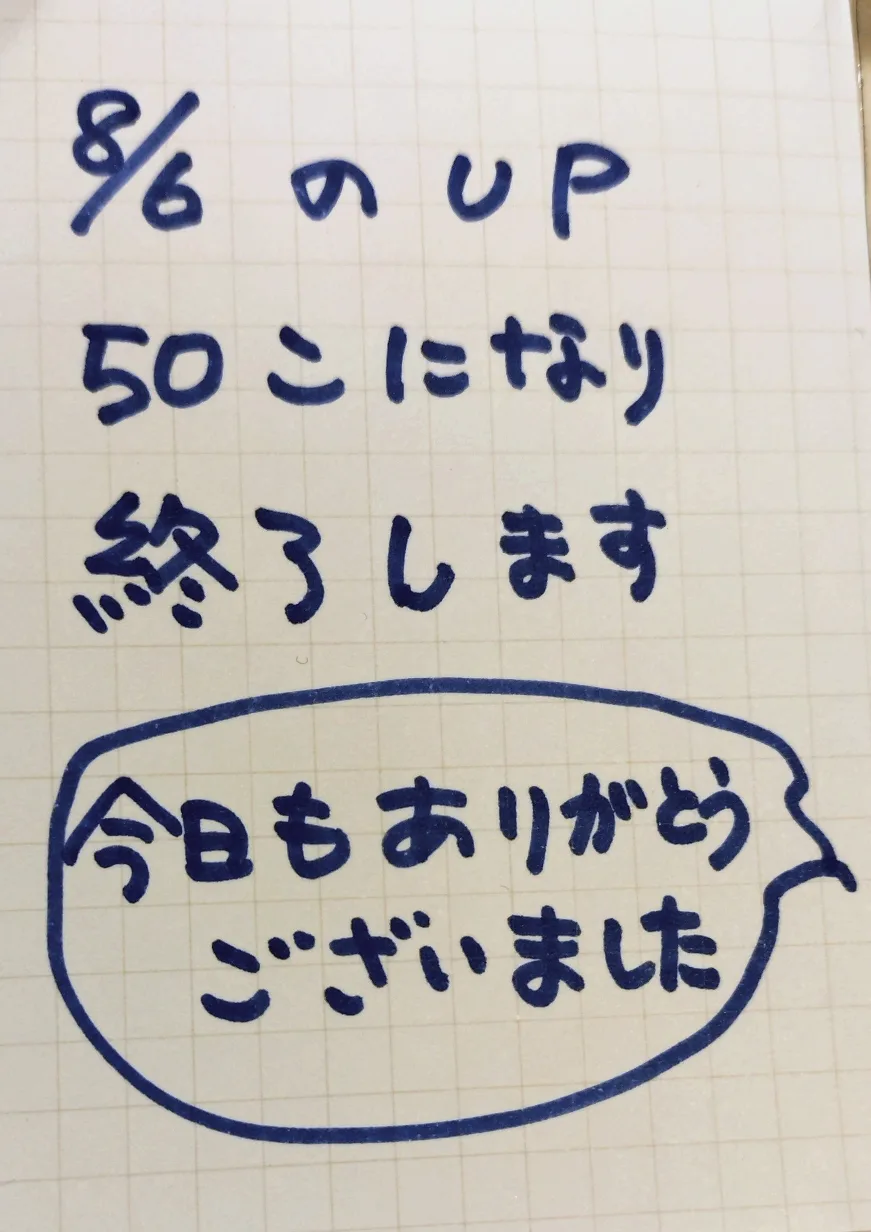 8/6 のUP
50こになり
終了します
今日もありがとう
ございました